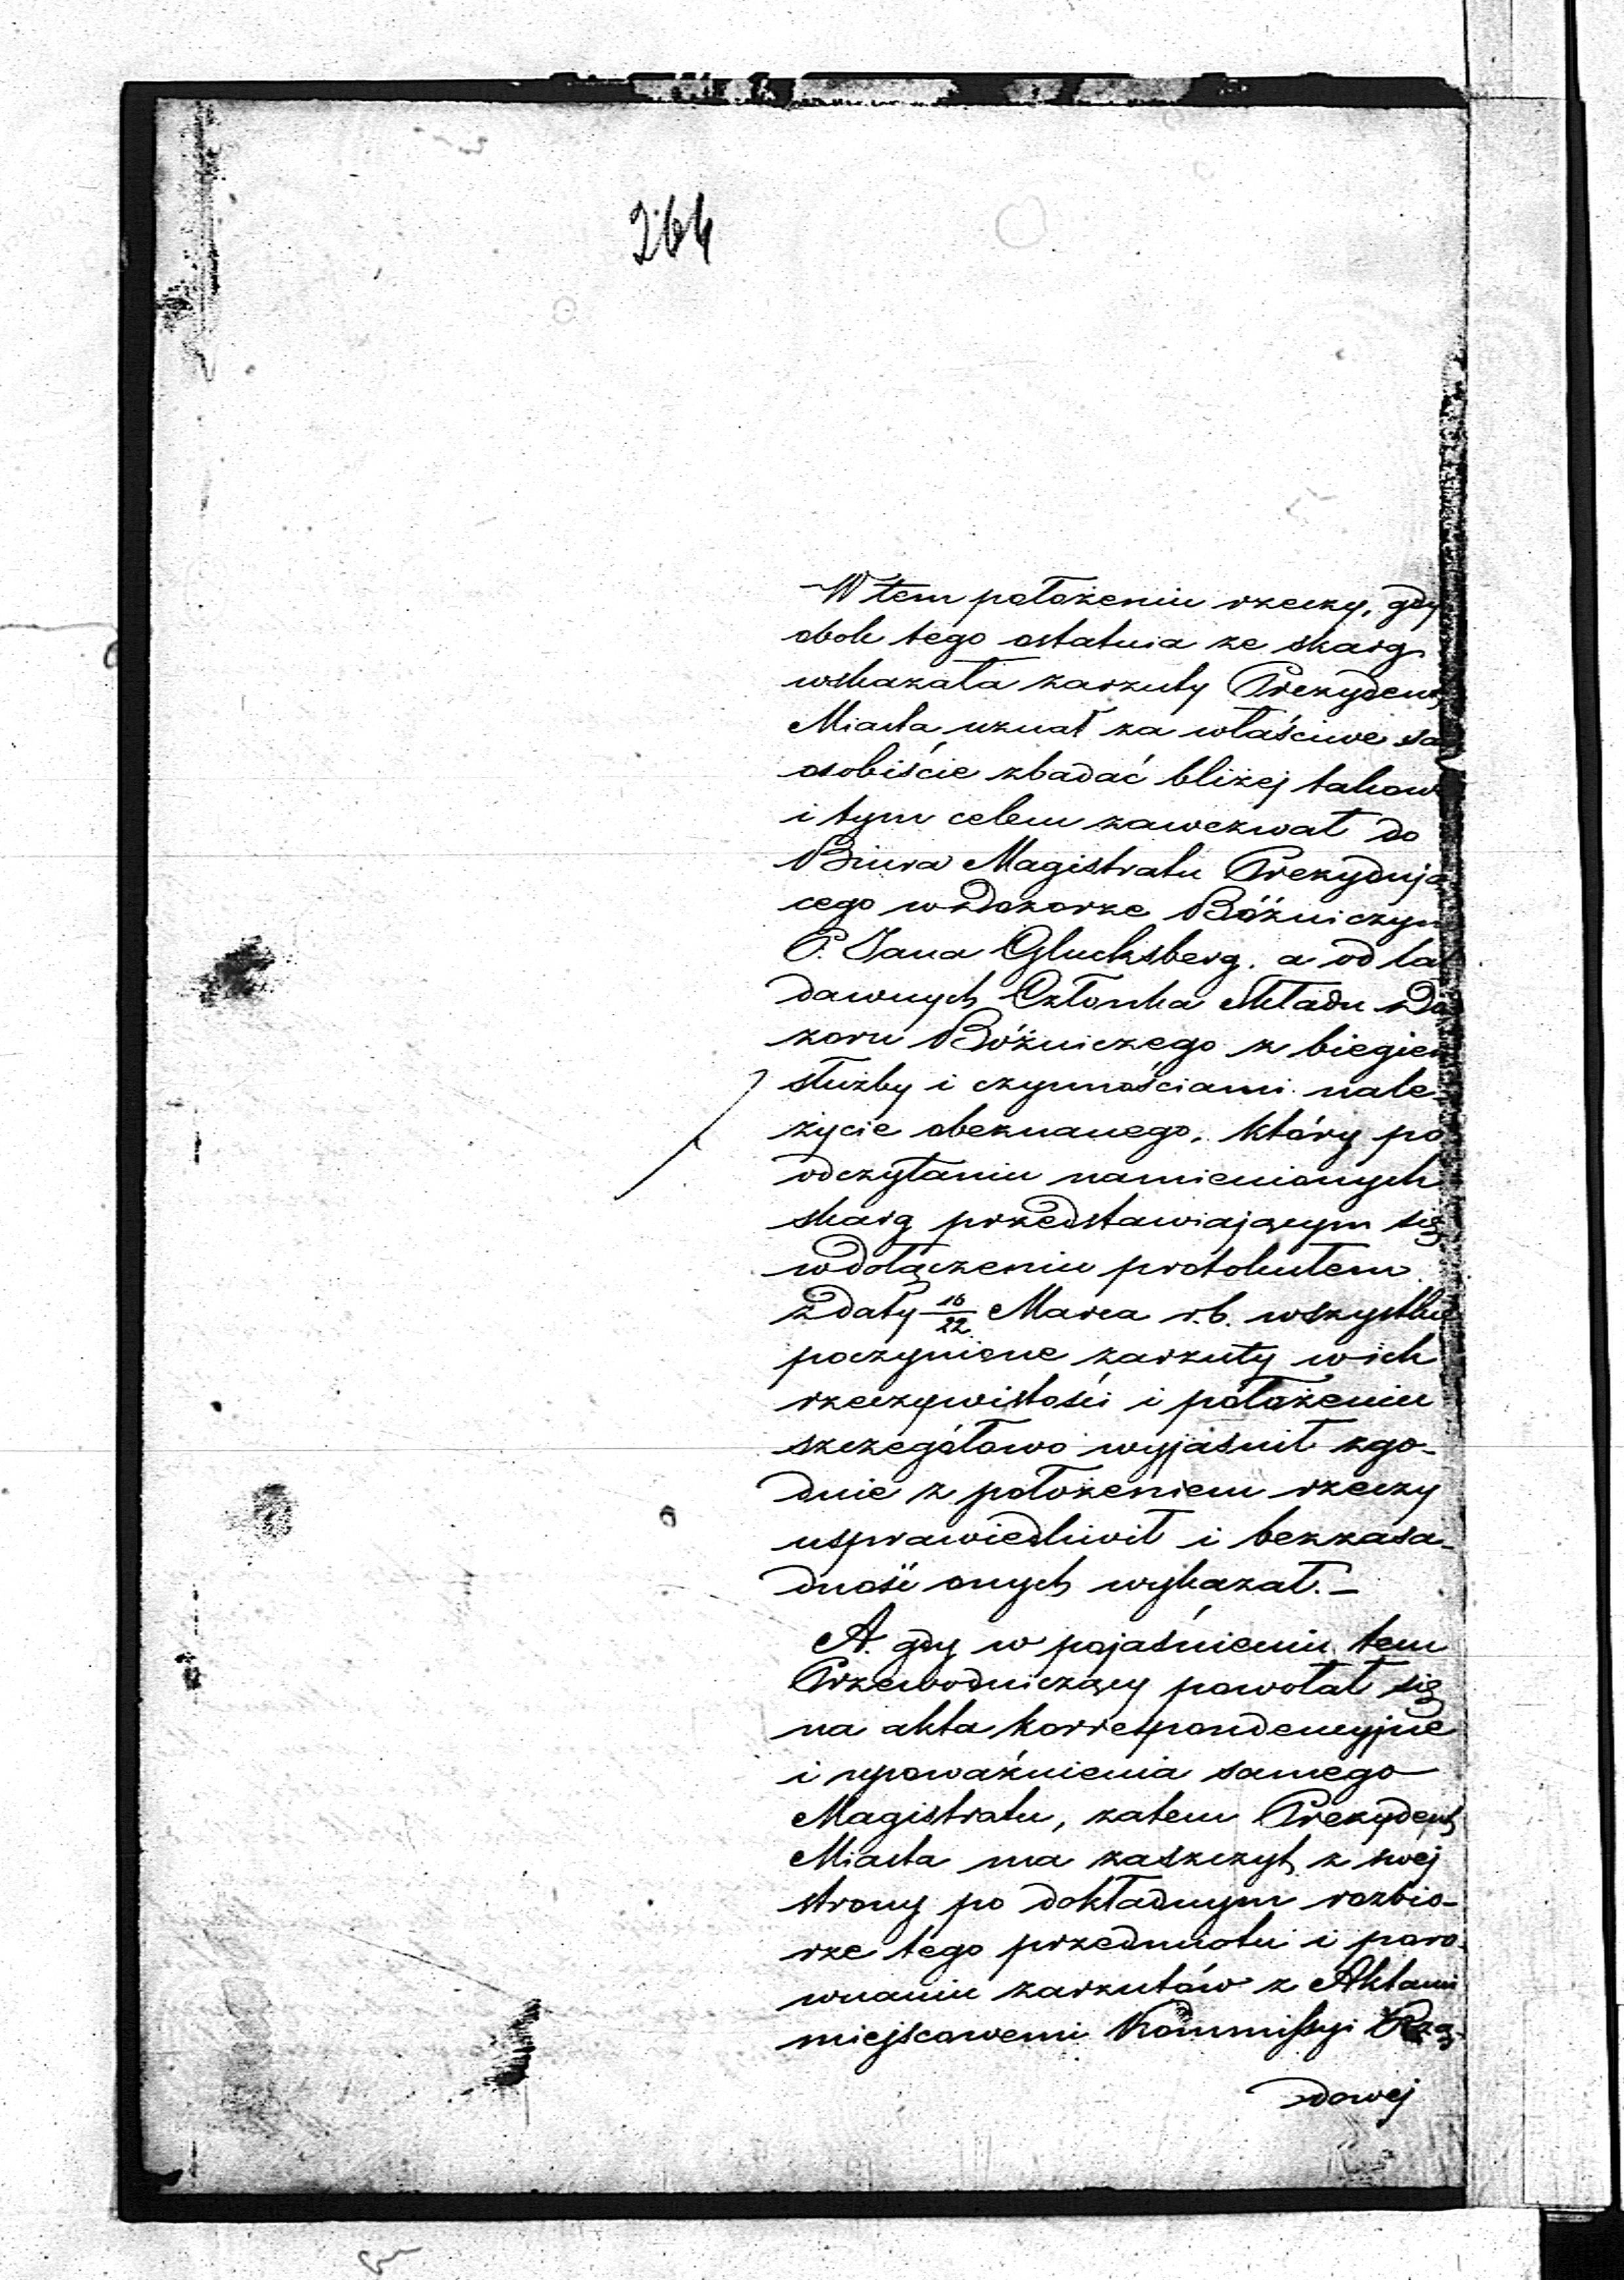 264
W tem położeniu rzeczy, gdy
obok tego ostatnia ze skarg
wskazała zarzuty Prezydent
Miasta uznał za właściwe sa
osobiście zbadać bliżej takow
i tym celem zawezwał do
Biura Magistratu Prezydują
cego w Dozorze Bóżniczym
P. Jana Glucksberg. a od lat
dawnych Członka składu Do
zoru Bóżniczego z biegiem
służby i czynnościami nale-
życie obeznanego, który po
odczytaniu namienionych
skarg przedstawiającym się
w dołączeniu protokułem
z daty 16/22 Marca r.b. wszystkie
poczynione zarzuty w ich
rzeczywistości i położeniu
szczegółowo wyjaśnił zgo-
dnie z położeniem rzeczy
usprawiedliwił i bezzasa-
dność onych wykazał. –
A. gdy w pojaśnieniu tem
Przewodniczący powołał się
na akta korrespondencyjne
i upoważnienia samego
Magistratu, zatem Prezydent
Miasta ma zaszczyt z swej
strony po dokładnym rozbio-
rze tego przedmiotu i poro-
wnaniu zarzutów z Aktami
miejscowemi Kommissyi Rzą-
dowej